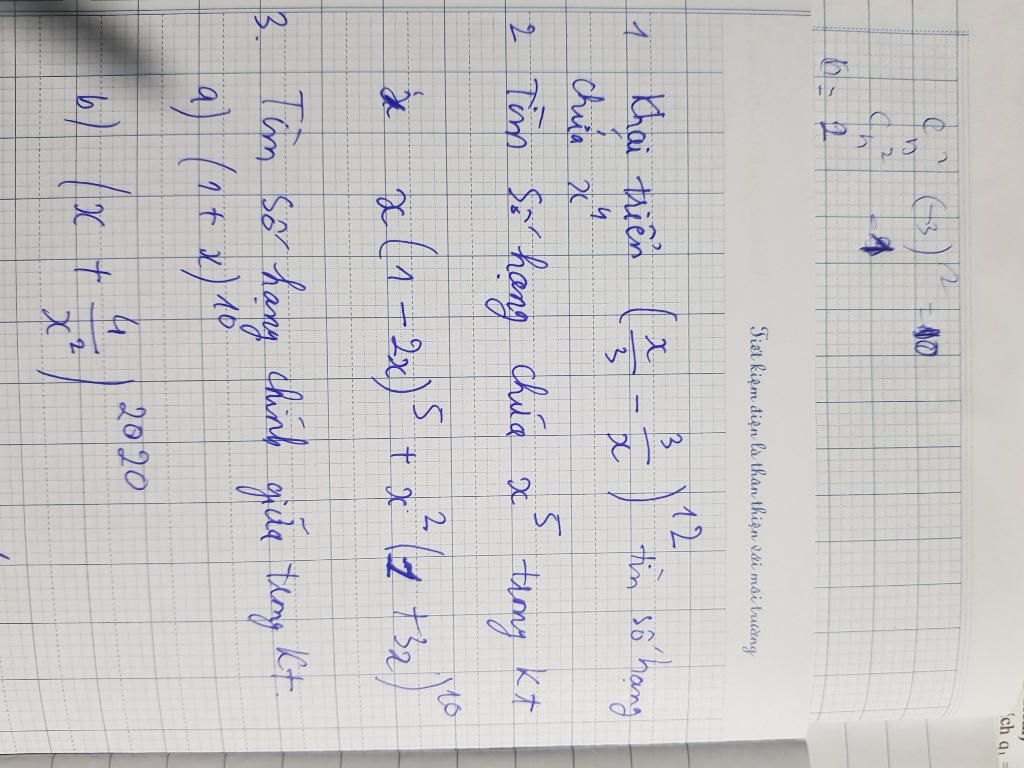 C_n^2 (-3)^2 = 10
C_n^2 = 1
n = 2
Tiết kiệm điện là thân thiện với môi trường
1 Khai triển (x/3 - 3/x)^12 tìm số hạng
chứa x^4
2 Tìm số hạng chứa x^5 trong kt
x(1 - 2x)^5 + x^2(1 + 3x)^10
3. Tìm số hạng chính giữa trong kt.
a) (1 + x)^10
b) (x + 4/x^2)^2020
ích q₁ =